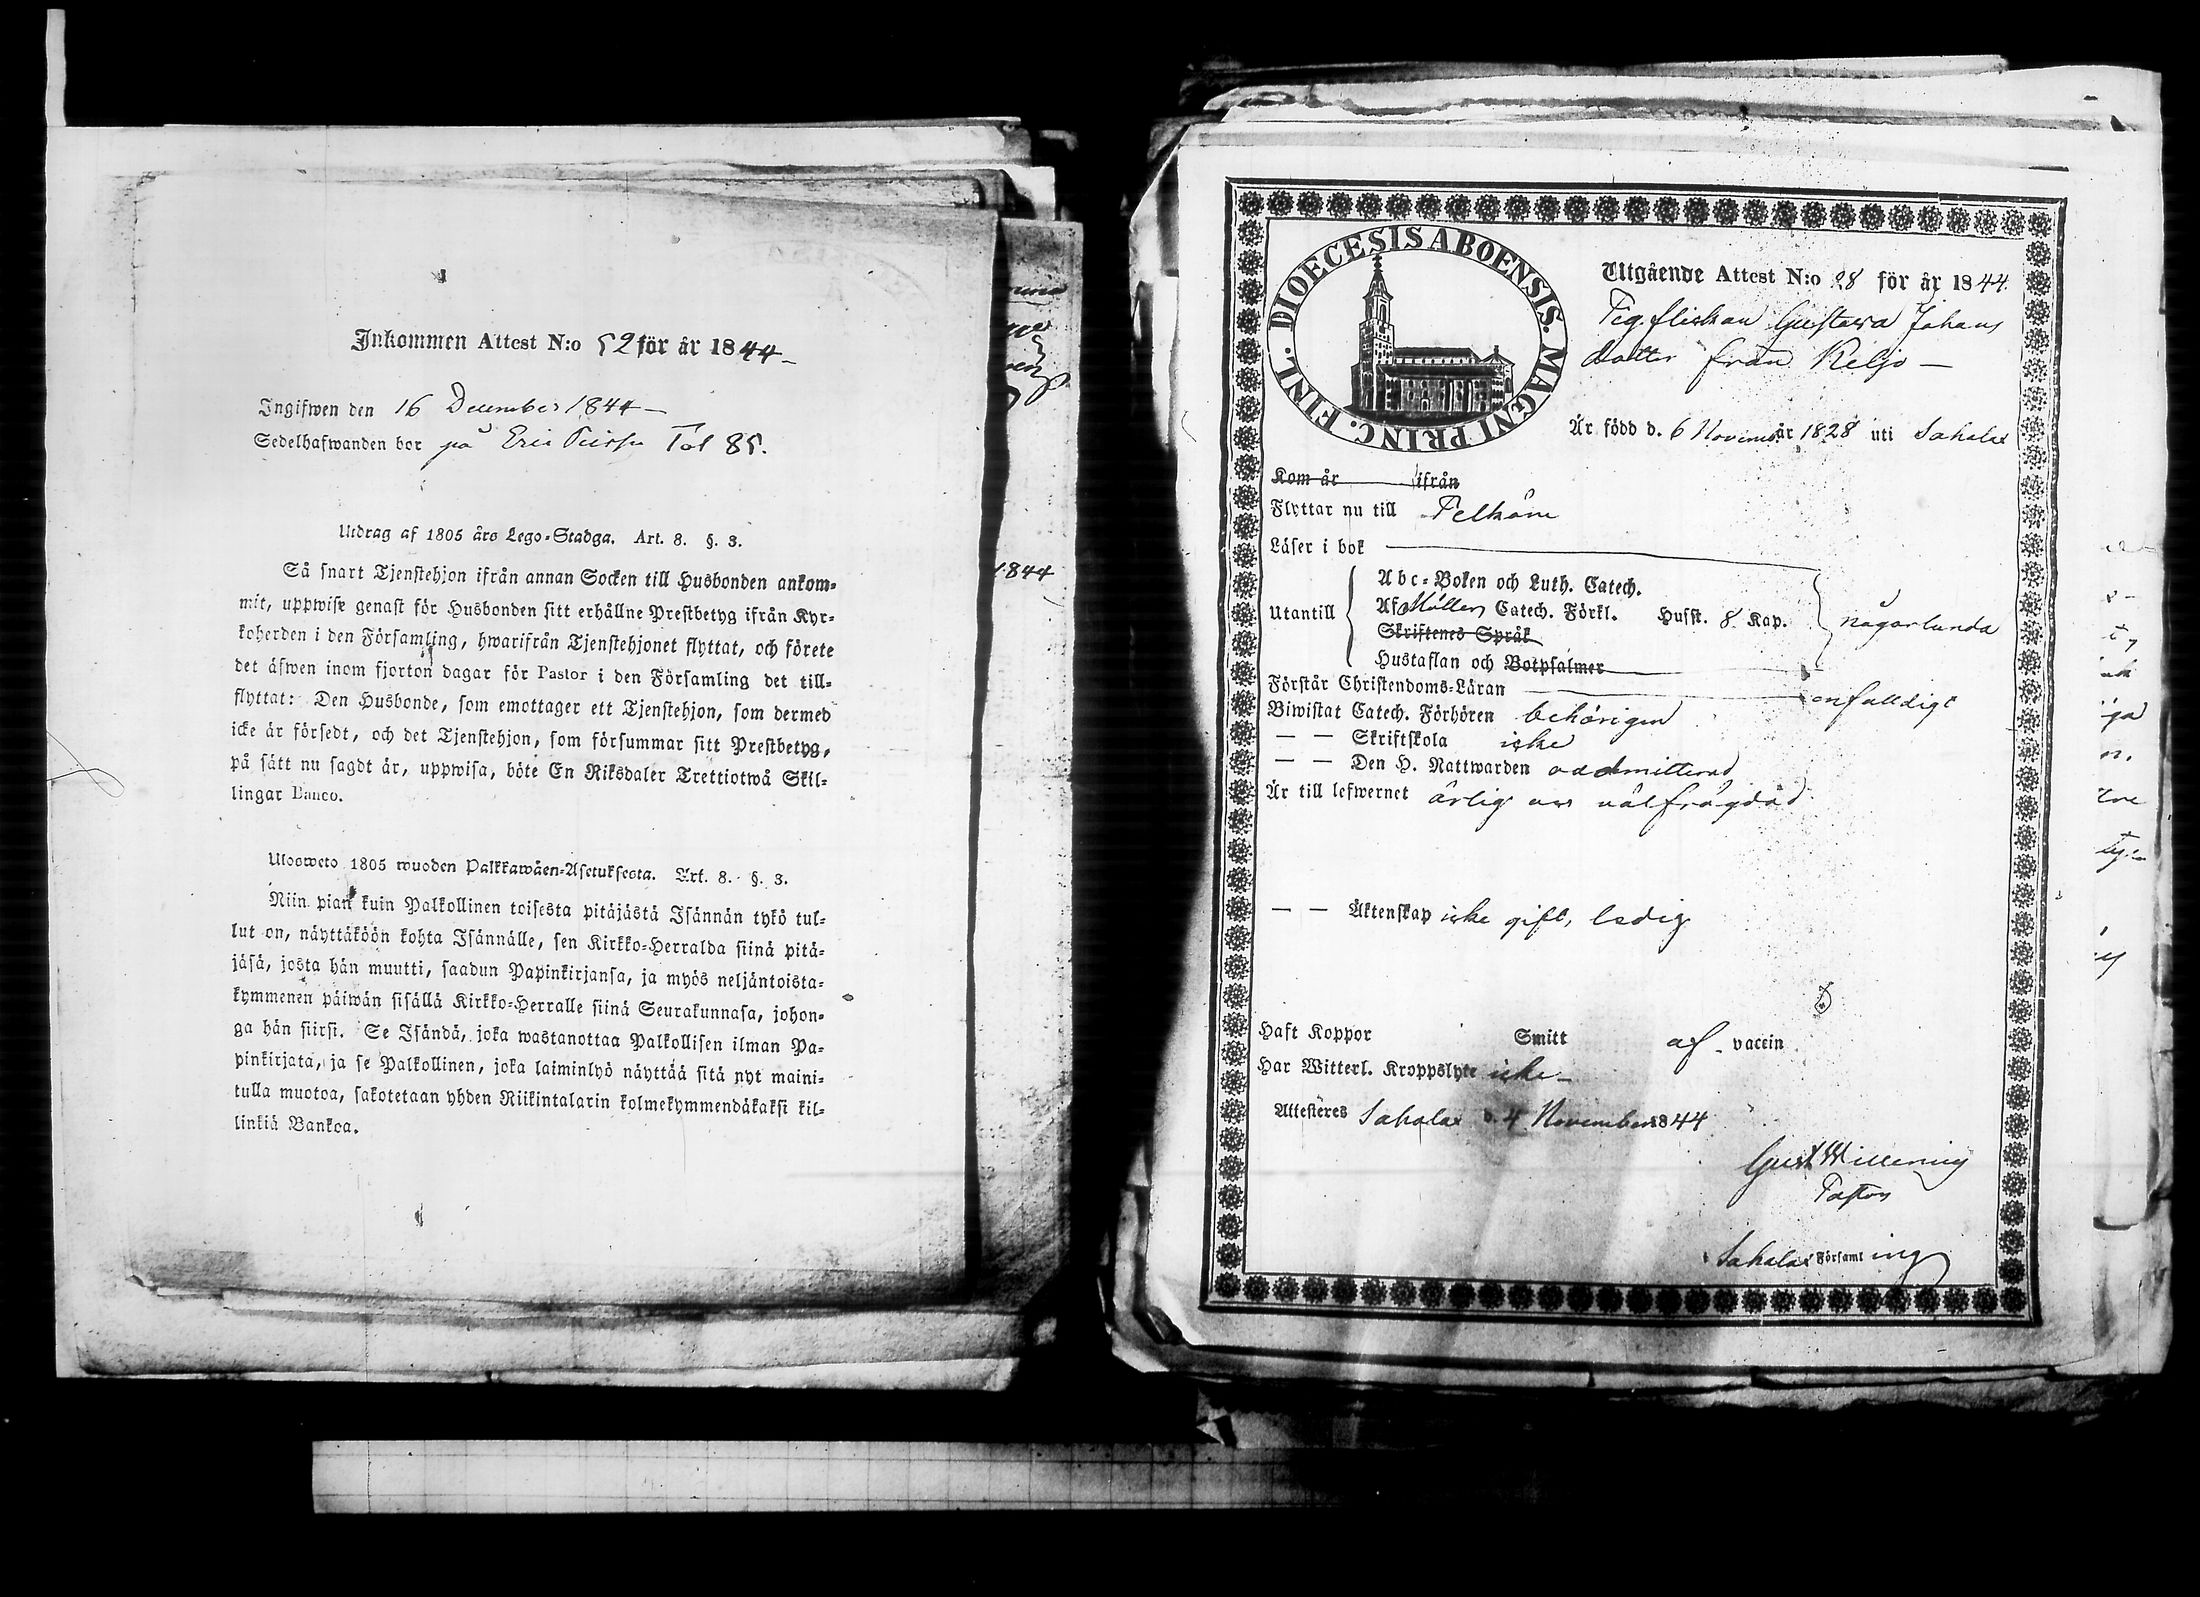 Inkommen Attest N:o 52 för år 1844
Ingifwen den 16 December 1844
Sedelhafwanden bor på Eric Tol 85.
Utdrag af 1805 års Lego-Stadga. Art. 8. §. 3.
Så snart Tjenstehjon ifrån annan Socken till Husbonden ankom-
mit, uppwise genast för Husbonden sitt erhållne Prestbetyg ifrån Kyr-
koherden i den Församling, hwarifrån Tjenstehjonet flyttat, och förete
det äfwen inom fjorton dagar för Pastor i den Församling det till-
flyttat: Den Husbonde, som emottager ett Tjenstehjon, som dermed
icke är försedt, och det Tjenstehjon, som försummar sitt Prestbetyg,
på sätt nu sagdt är, uppwisa, böte En Riksdaler Trettiotwå Skil-
lingar Banco.
Ulosweto 1805 wuoden Palkkawäen-Asetuksesta. Art. 8. §. 3.
Niin pian kuin Palkollinen toisesta pitäjästä Isännän tykö tul-
lut on, näyttäköön kohta Isännälle, sen Kirkko-Herralda siinä pitä-
jäsä, josta hän muutti, saadun Papinkirjansa, ja myös neljäntoista-
kymmenen päiwän sisällä Kirkko-Herralle siinä Seurakunnasa, johon-
ga hän siirsi. Se Isändä, joka wastanottaa Palkollisen ilman Pa-
pinkirjata, ja se Palkollinen, joka laiminlyö näyttää sitä nyt maini-
tulla muotoa, sakotetaan yhden Riikintalarin kolmekymmendäkaksi kil-
linkiä Bankoa.
1844
DIOECESIS ABOENSIS. MAGNI PRINC. FINL.
Utgående Attest N:o 28 för år 1844.
Pig.flickan Gustava Johans
dotter från Keljo
Är född d. 6 Novemb. år 1828 uti Sahalax
Kom år ifrån
Flyttar nu till Pelkäne
Läser i bok
Utantill
Abc-Boken och Luth. Catech.
Af Möllers Catech. Förkl. Husst. 8 Kap. någorlunda
Skriftenes Språk
Hustaflan och Botpsalmer
Förstår Christendoms-Läran enfaldigt
Biwistat Catech. Förhören behörigen
— — Skriftskola icke
— — Den H. Nattwarden oadmitterad
Är till lefwernet ärlig och välfrägdad
— — Äktenskap icke gift, ledig
Haft Koppor Smitt af vaccin
Har Witterl. Kroppslyte icke
Attesteres Sahalax d. 4 November 1844
Gust Willenius
Pastor
Sahalax Församling